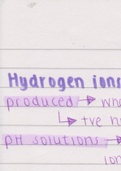 Hydrogen ions
produced → wh
↳ +ve h
pH solutions →
ion